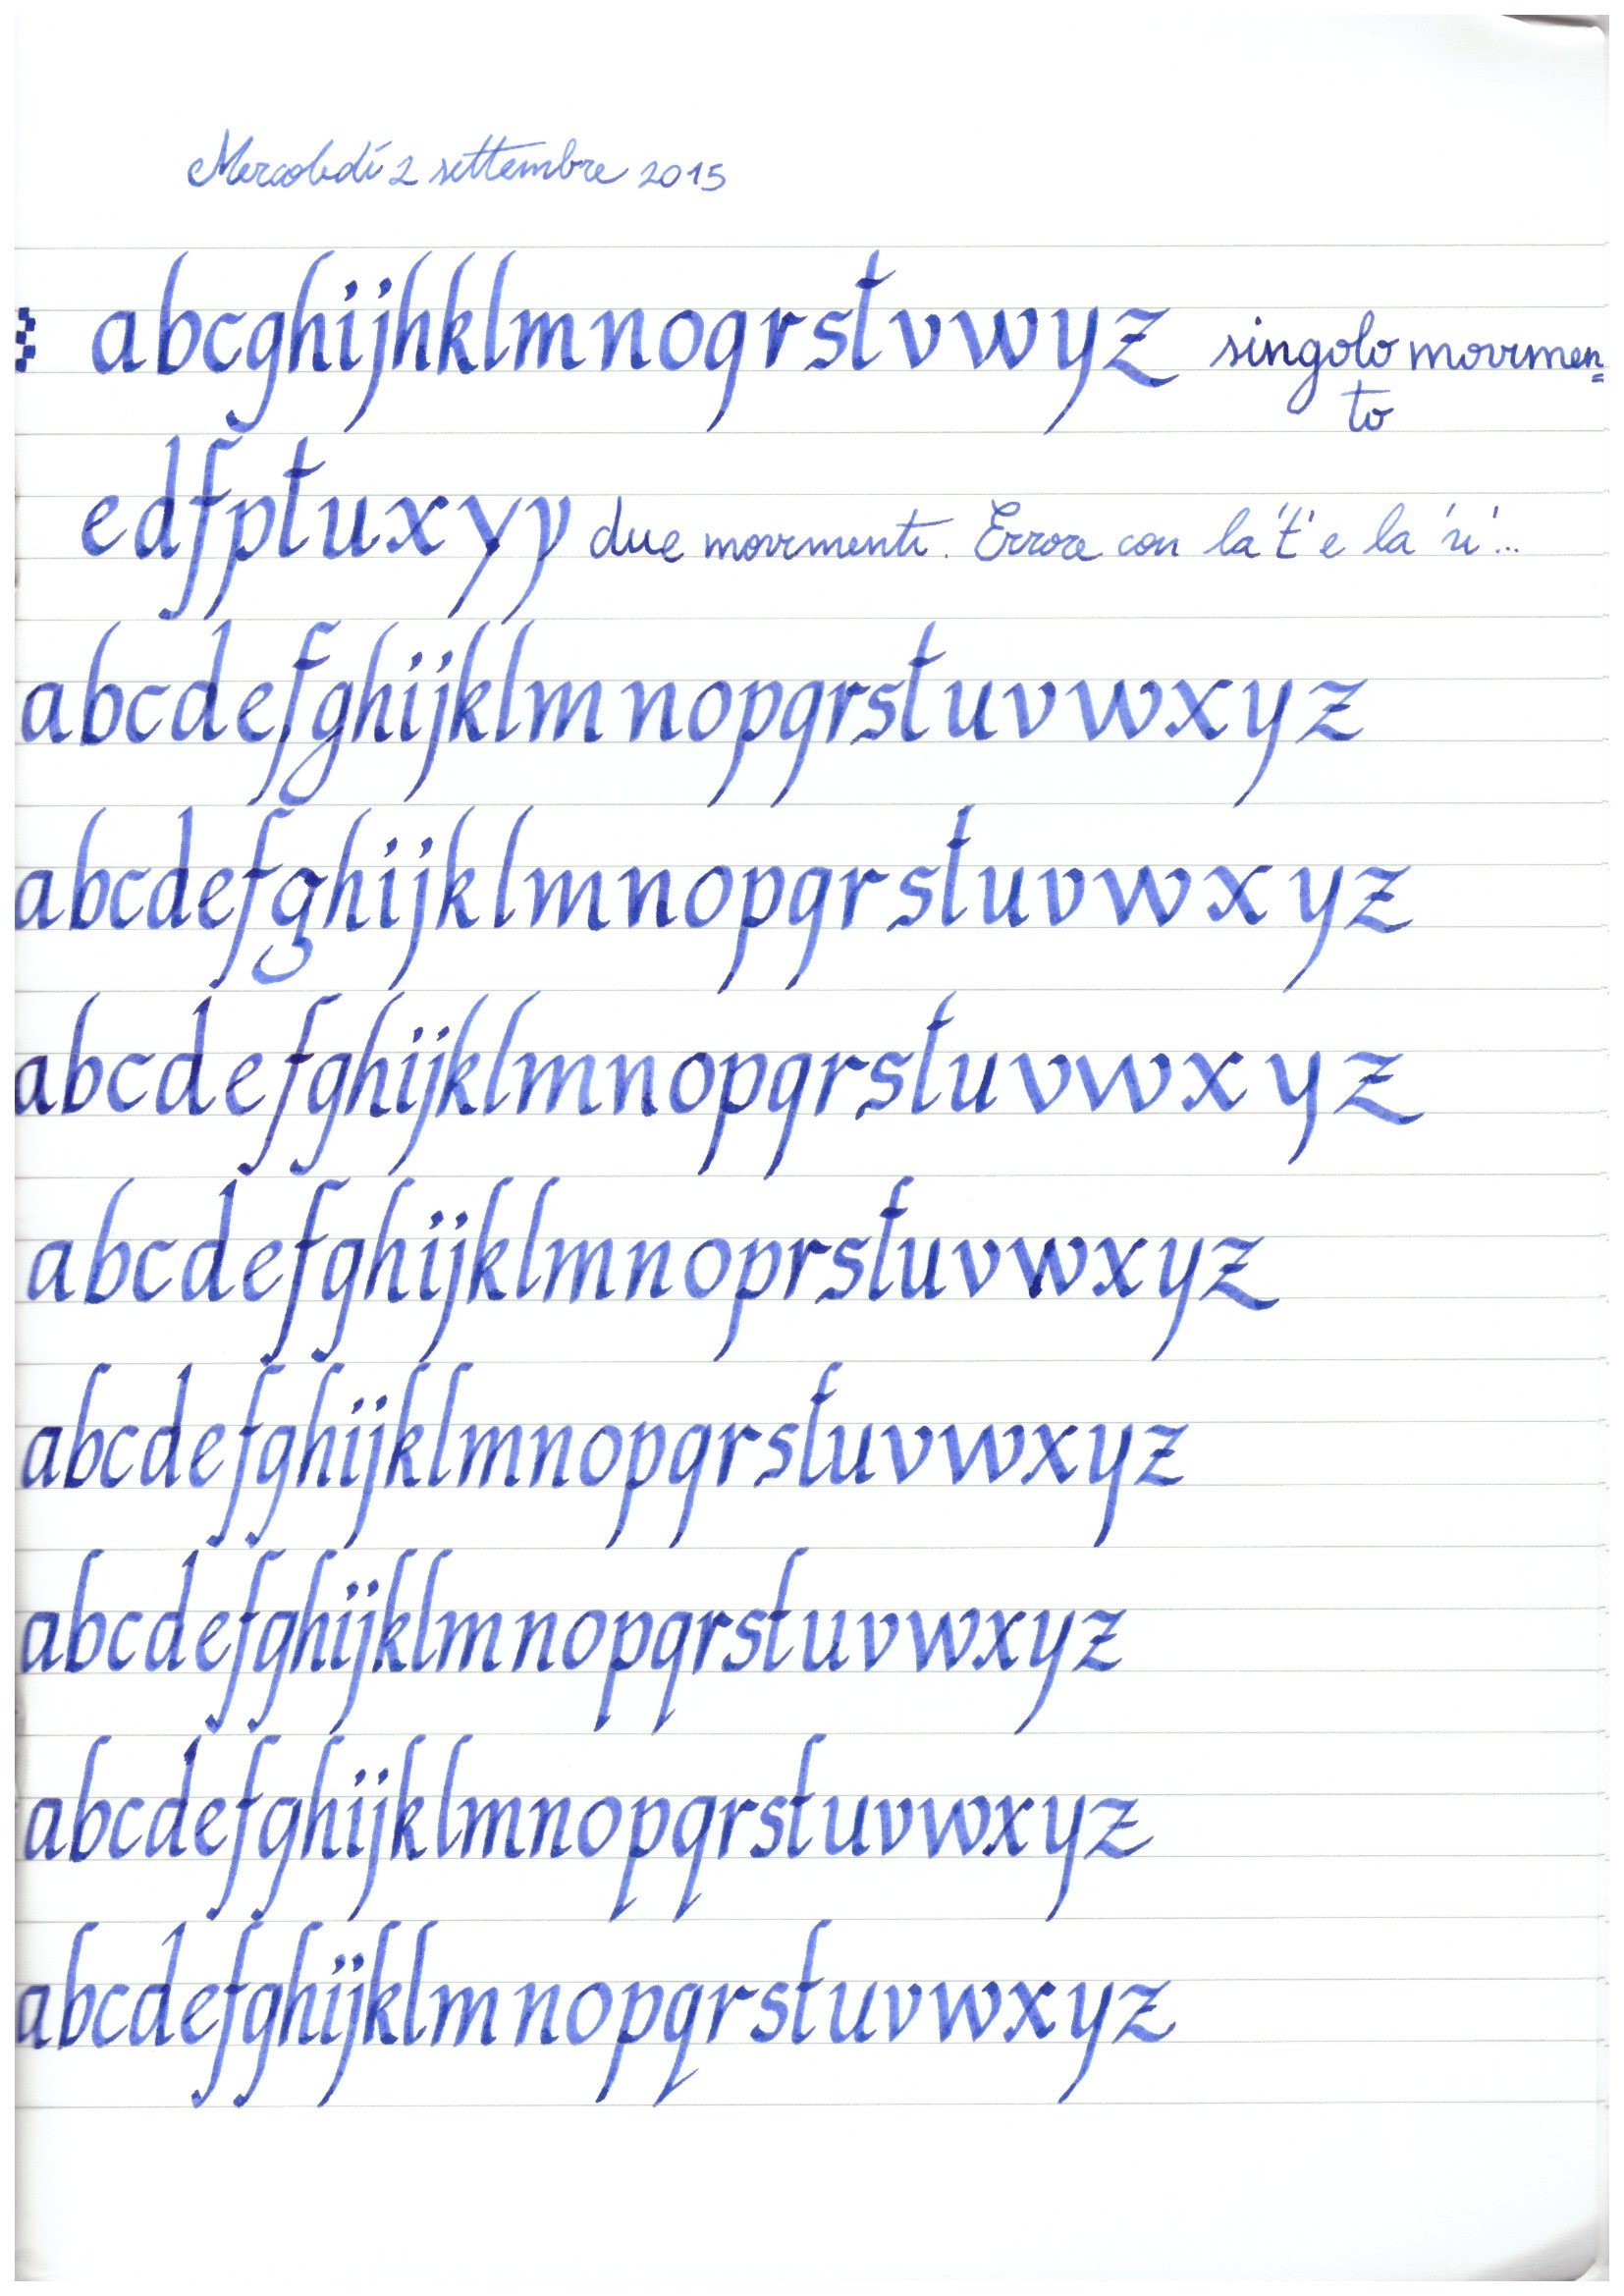 Mercoledí 2 settembre 2015
abcghijhklmnoqrstvwyz singolo movimen=
to
edfptuxyy due movimenti. Errore con la 't' e la 'u'...
abcdefghijklmnopqrstuvwxyz
abcdefghijklmnopqrstuvwxyz
abcdefghijklmnopqrstuvwxyz
abcdefghijklmnoprstuvwxyz
abcdefghijklmnopqrstuvwxyz
abcdefghijklmnopqrstuvwxyz
abcdefghijklmnopqrstuvwxyz
abcdefghijklmnopqrstuvwxyz